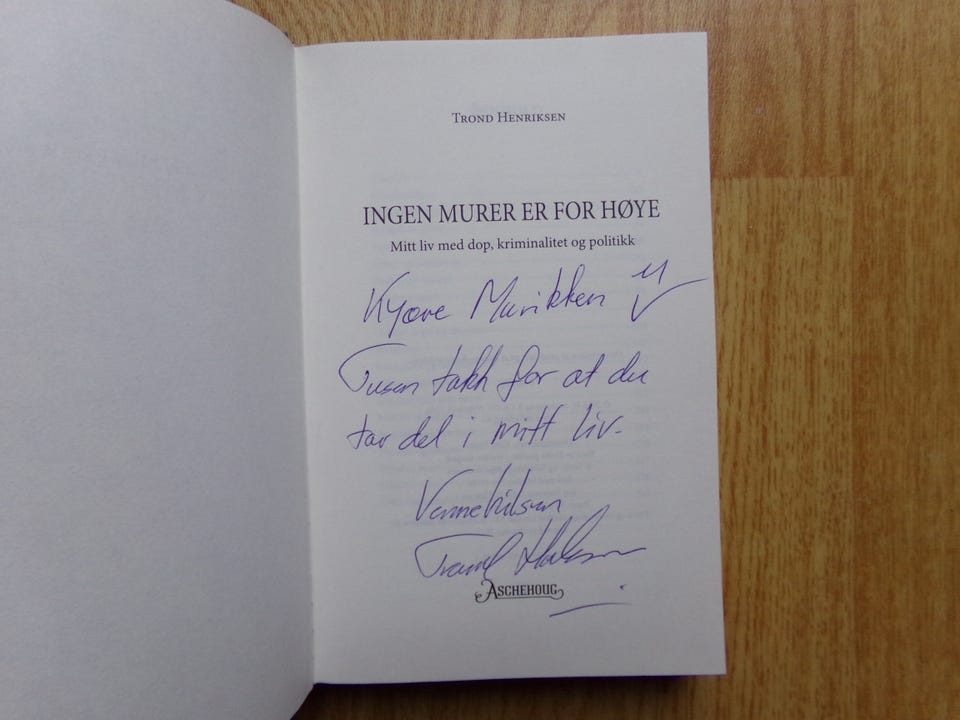 Trond Henriksen
INGEN MURER ER FOR HØYE
Mitt liv med dop, kriminalitet og politikk
Kjære Marikken
Tusen takk for at du
tar del i mitt liv.
Vennehilsen
Trond Henriksen
ASCHEHOUG